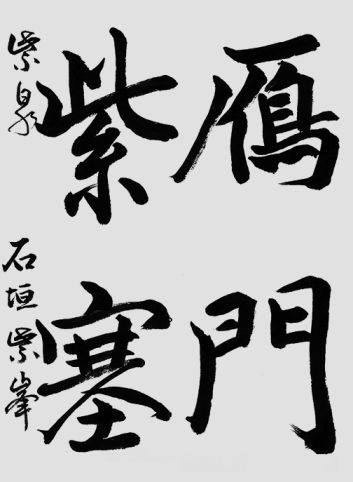 鴈門
紫塞
紫泉
石垣紫峯